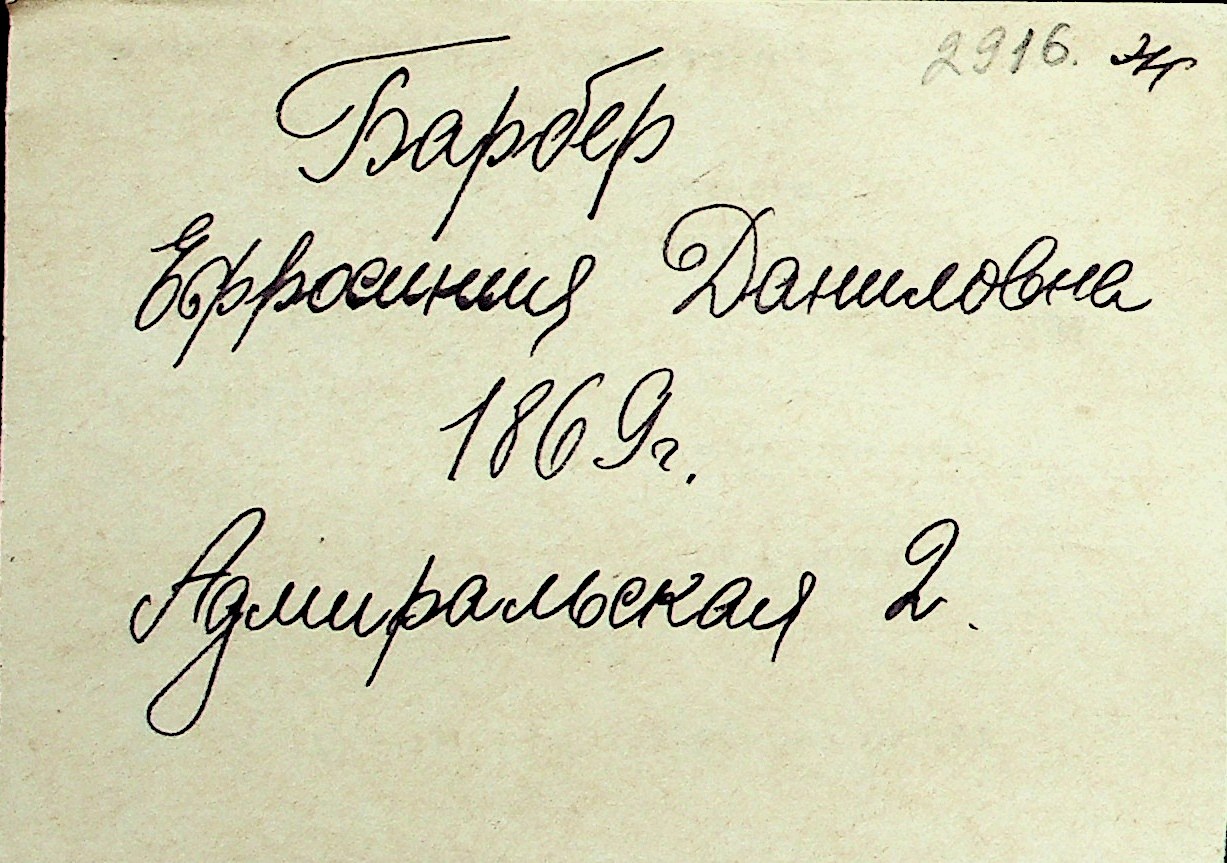 2916. Ж
Барбер
Ефросиния Даниловна
1869г.
Адмиральская 2.